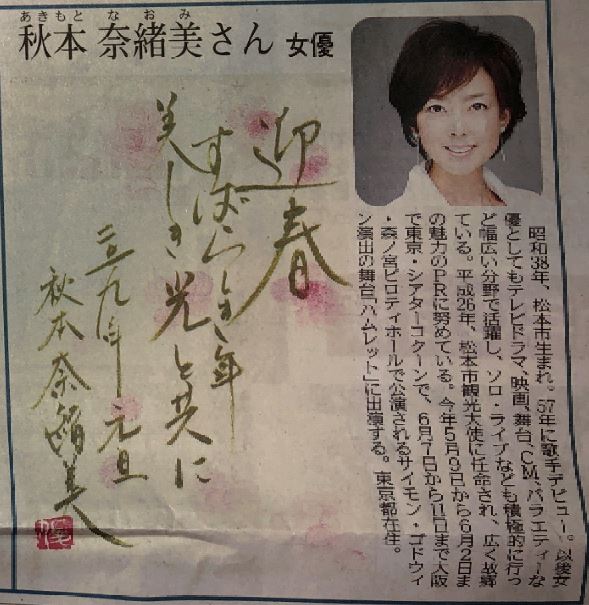 あきもと なおみ
秋本 奈緒美さん 女優
昭和38年、松本市生まれ。57年に歌手デビュー。以後女
優としてもテレビドラマ、映画、舞台、CM、バラエティーな
ど幅広い分野で活躍し、ソロ・ライブなども積極的に行っ
ている。平成26年、松本市観光大使に任命され、広く故郷
の魅力のPRに努めている。今年5月9日から6月2日ま
で東京・シアターコクーンで、6月7日から11日まで大阪
・森ノ宮ピロティホールで公演されるサイモン・ゴドウィ
ン演出の舞台「ハムレット」に出演する。東京都在住。
迎春
すばらしき年
美しき光と共に
二〇一九年 元旦
秋本奈緒美